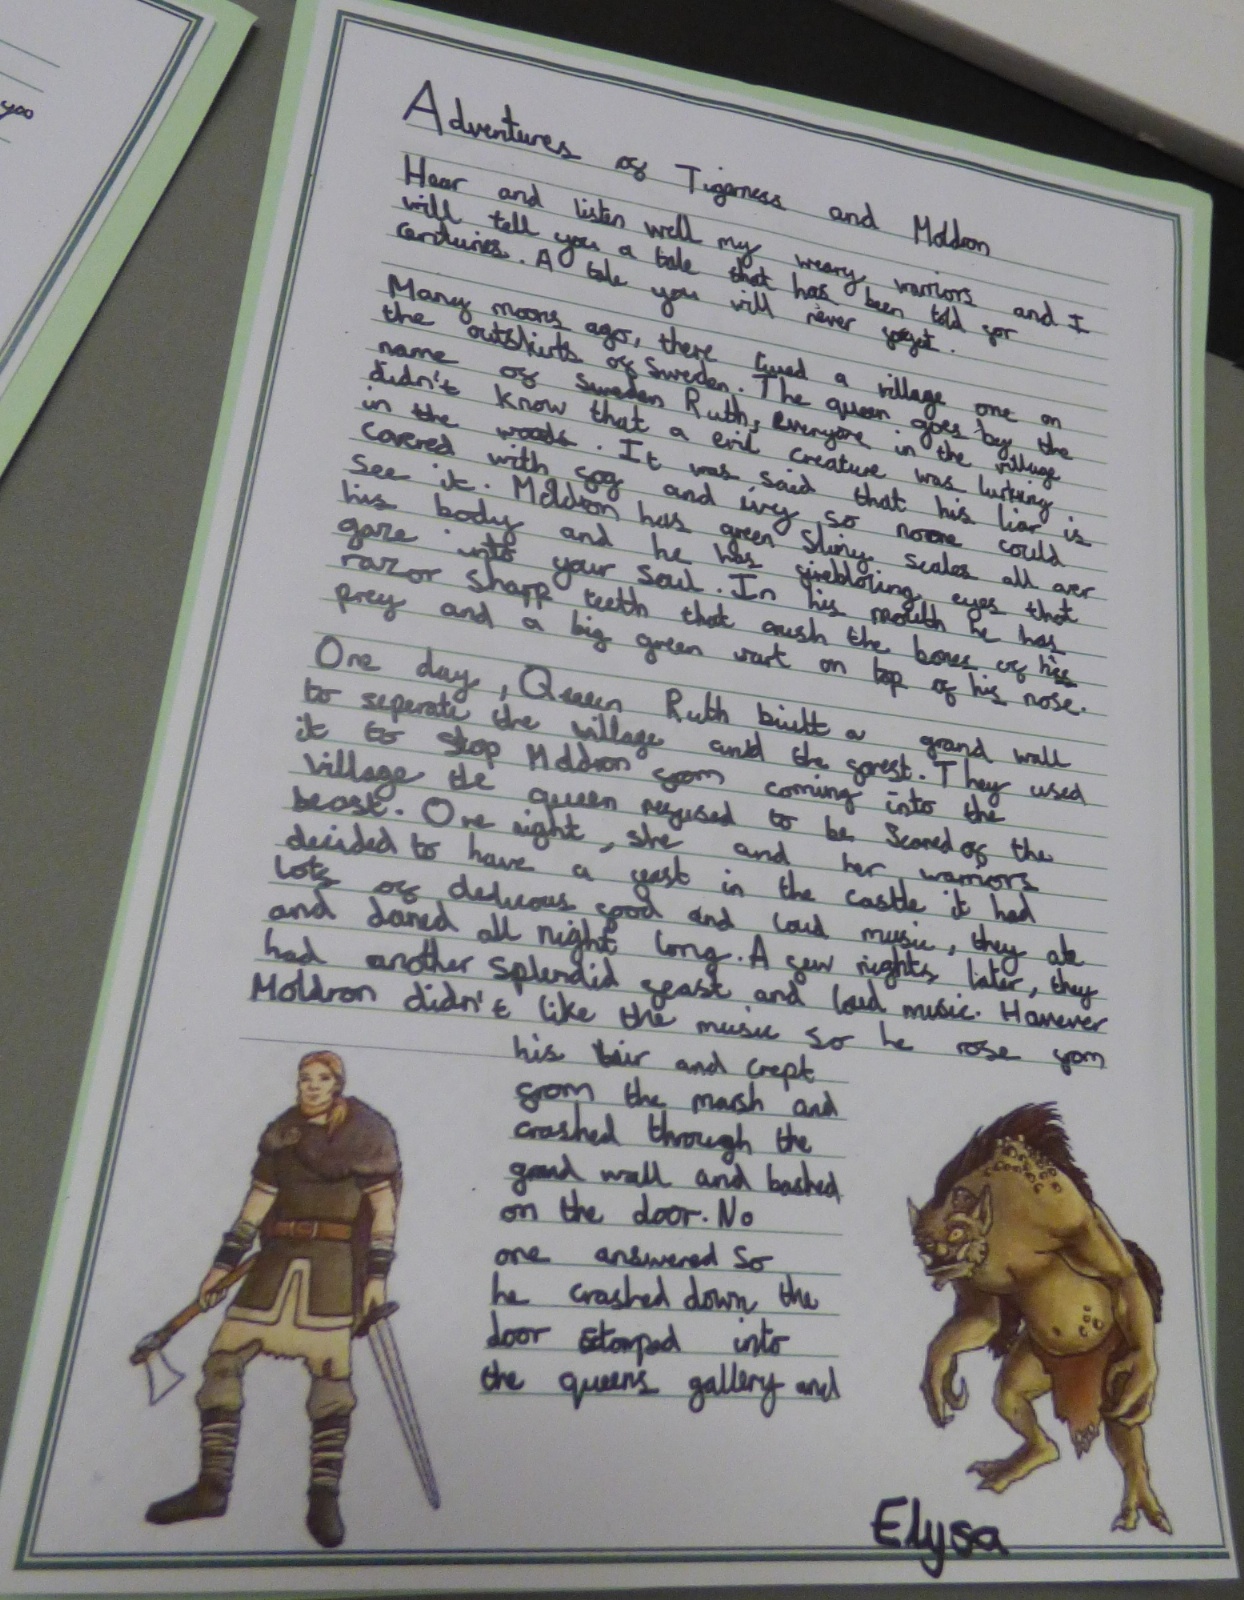 yoo
Adventures of Tigerness and Moldron
Hear and listen well my weary warriors and I
will tell you a tale that has been told for
centuries. A tale you will never forget.
Many moons ago, there lived a village one on
the outskirts of Sweden. The queen goes by the
name of Sweden Ruth, everyone in the village
didn't know that a evil creature was lurking
in the woods. It was said that his liar is
covered with fog and ivry so noone could
see it. Moldron has green sliny scales all over
his body and he has firebloring eyes that
gaze into your soul. In his mouth he has
razor sharp teeth that crush the bones of his
prey and a big green wart on top of his nose.
One day, Queen Ruth built a grand wall
to seperate the village and the forest. They used
it to stop Moldron from coming into the
village the queen refused to be scared of the
beast. One night, she and her warriors
decided to have a feast in the castle it had
lots of delicous food and loud music, they ate
and daned all night long. A few nights later, they
had another splendid feast and loud music. However
Moldron didn't like the music so he rose from
his lair and crept
from the marsh and
crashed through the
grand wall and bashed
on the door. No
one answered so
he crashed down the
door stomped into
the queens gallery and
Elysa